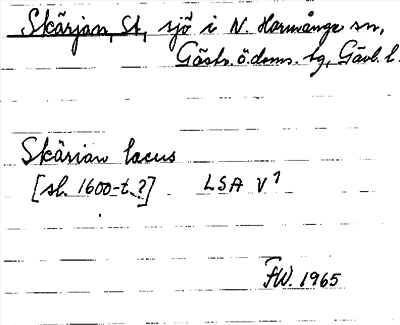 Skärjan, St, sjö i N. Harmånge sn,
Gästr. ö. doms. tg, Gävl. l.
Skärian lacus
[sl. 1600-t.?] LSA V 1
FW. 1965